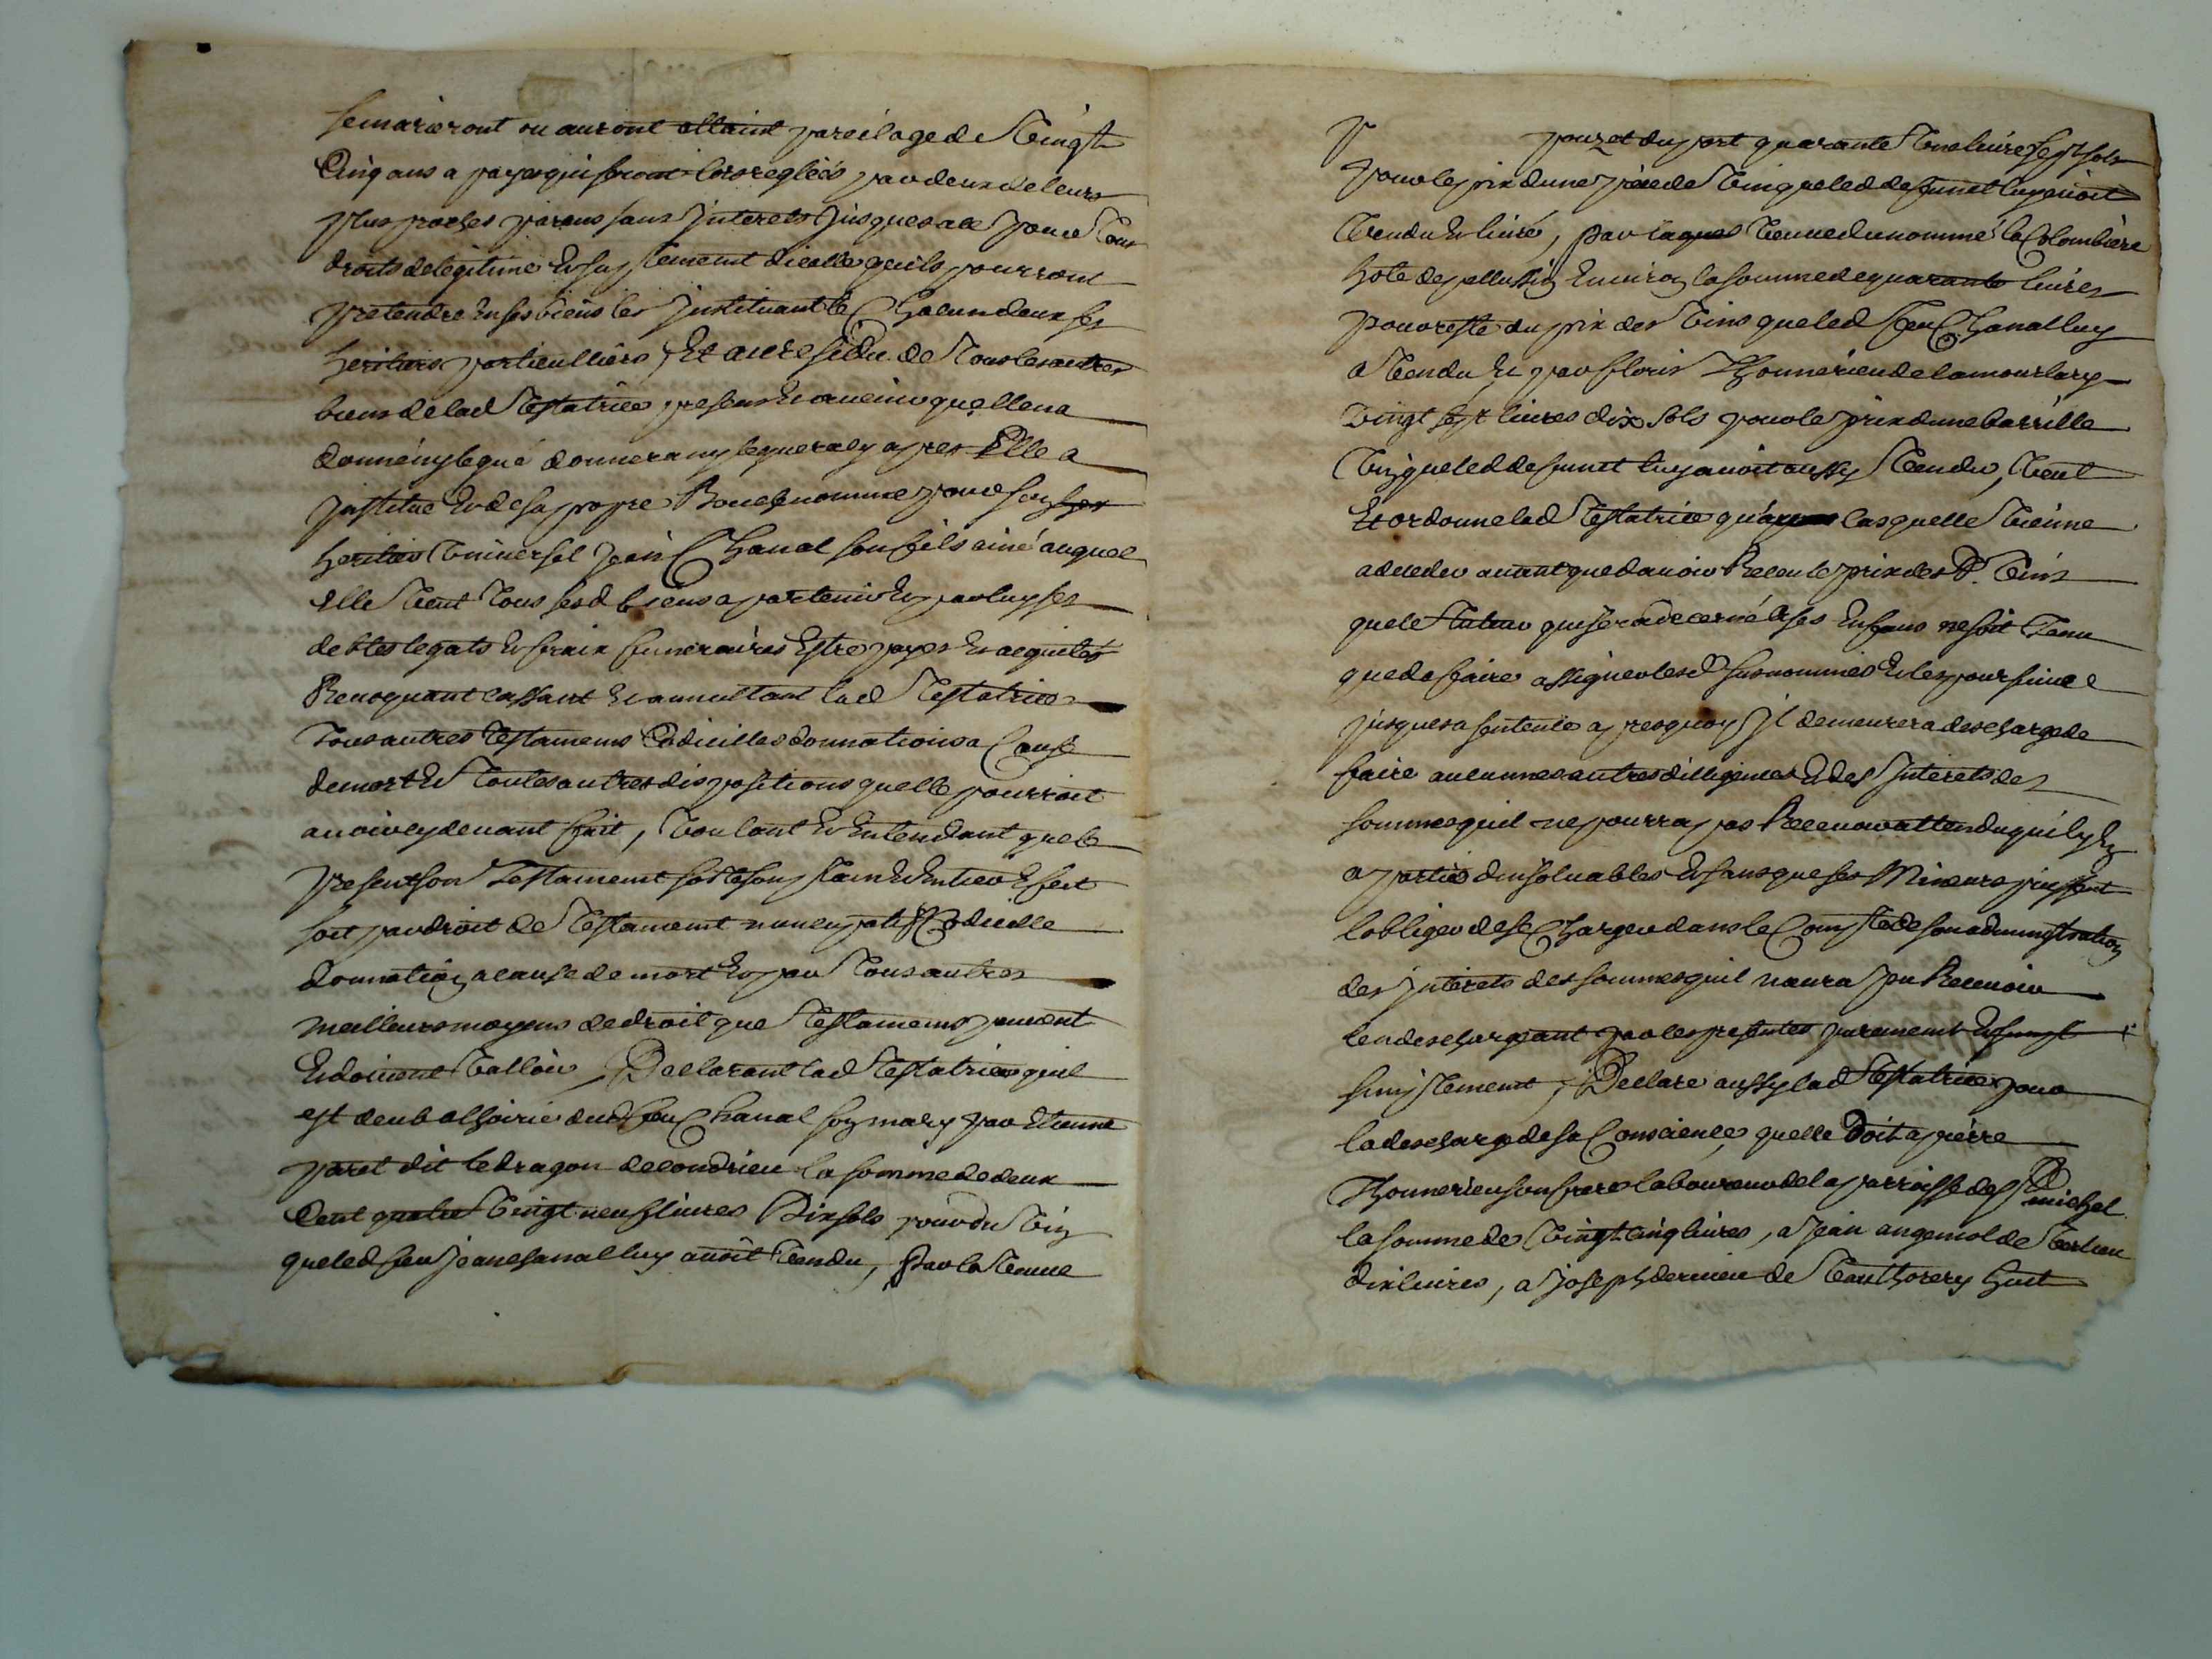 se marieront ou auront attaint pareil age de vingt
cinq ans a payes qui seront lors reglées par deux de leurs
plus proches parens sans interets jusques a ce pour tous
droits de legitime et suplement dicelle quils pourront
pretendre en ses biens les instituant le chacun deux ses
heritiers particulliers, Et au residu de tous les autres
biens de lad testatrice presens et avenir quelle na
donné ny legué donnera ny leguera cy apres Elle a
institué et de sa propre Bouche nommé pour son
heritier universel Jean Chanal son fils ainé auquel
elle veut tous sesd biens apartenir et par luy ses
debtes legats et fraix funeraires Estre payes et acquités
Revoquant cassant et annullant lad Testatrice
tous autres testamens Codicilles donnations a Cause
de mort et toutes autres dispositions quelle pourroit
avoir cy devant fait, voulant et entendant que le
present son testament sorte son plain et entier Effect
soit par droit de testament nuncupatif Codicille
donnation a cause de mort et par tous autres
meilleurs moyens de droit que testamens peuvent
et doivent valloir, Declarant lad testatrice quil
est deub a lhoirie dud feu Chanal son mary par Etienne
paret dit le dragon de condrieu la somme de deux
Cent quatre vingt neuf livres Dix sols pour du vin
que led feu Jean chanal luy avoit vendu, Par la veuve
pouzet du port quarante une livre sept sols
pour le prix dune piece de vin que led deffunct luy avoit
vendu et livré, par la veuve du nommé la Colombiere
hote de pellussin environ la somme de quarante livres
pour reste du prix des vins que led feu Chanal luy
a vendu Et par floris Thonnerieu de lamourlary
vingt sept livres dix sols pour le prix dune barrille
vin que led deffunct luy avoit aussy vendu, veut
Et ordonne lad testatrice lasquelle vienne
a deceder avant que davoir Receu le prix desd. vins
que le tuteur qui sera decerné a ses Enfans ne soit tenu
que de faire assigner lesd susnommés et les poursuivre
jusques a sentence apres quoy il demeurera deschargé de
faire aucunnes autres dilligences et des interets des
sommes quil ne pourra pas Recevoir attendu quil y en
a partie dinsolvables et sans que ses Mineurs puissent
lobliger de se Charger dans le Compte de son administration
des interets des sommes quil naura pu Recevoir
len deschargeant par les presentes purement et
simplement, Declare aussy lad Testatrice pour
la descharge de sa Conscience quelle Doit a pierre
Thonnerieu son frere laboureur de la parroisse de St michel
la somme de vingt cinq livres, a Jean angeniol de verlieu
dix livres, a Joseph dervieu de huit